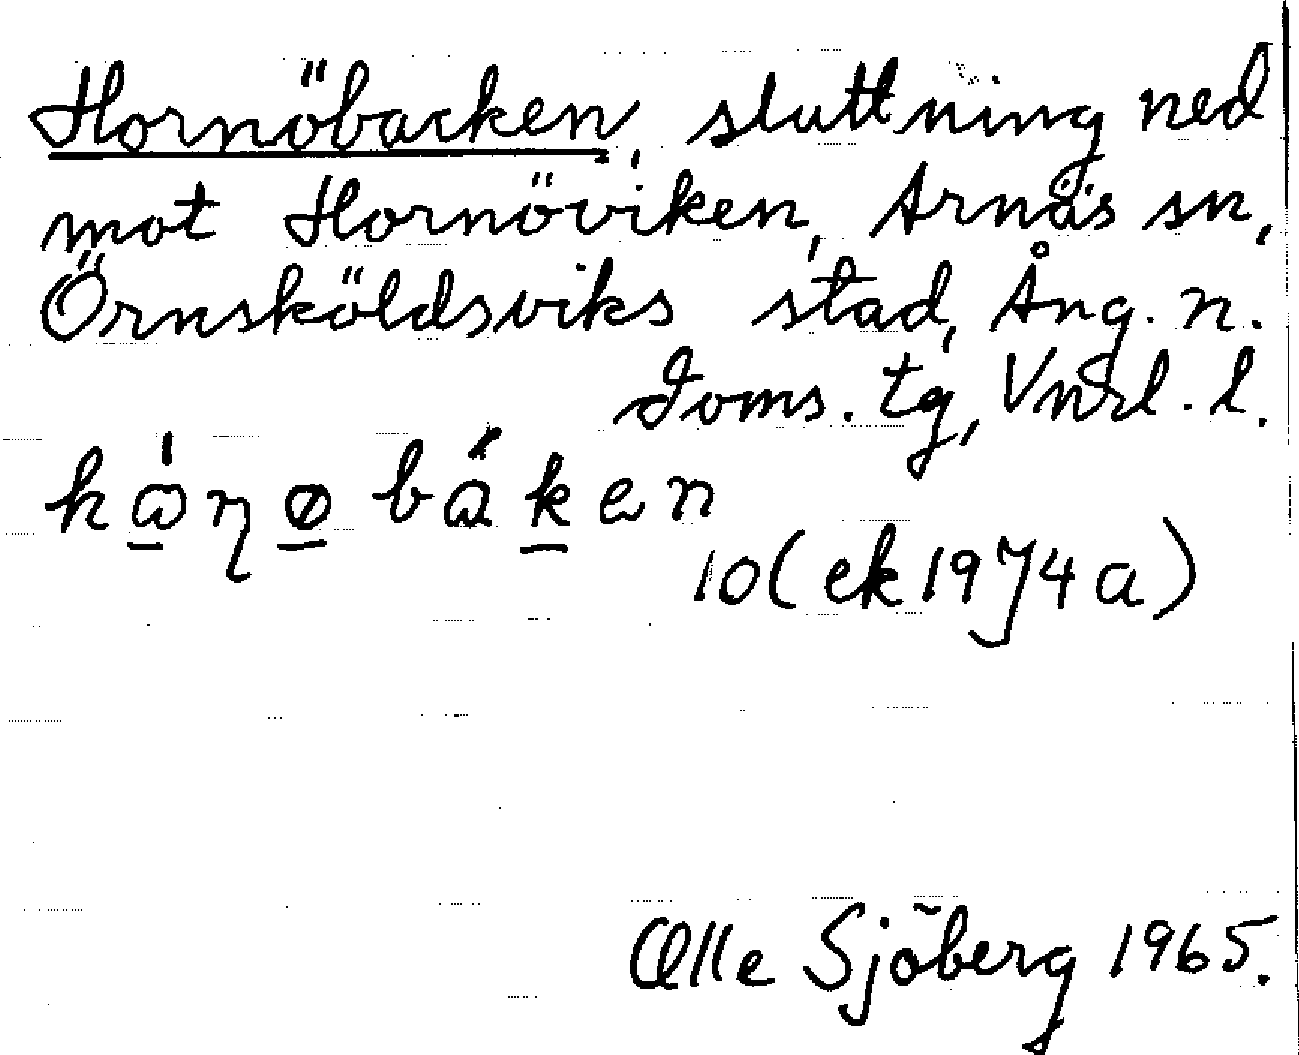 Hornöbacken, sluttning ned
mot Hornöviken, Arnäs sn,
Örnsköldsviks stad, Ång. n.
Doms. tg, Vnrl. l.
10 (ek 1974 a)
Olle Sjöberg 1965.